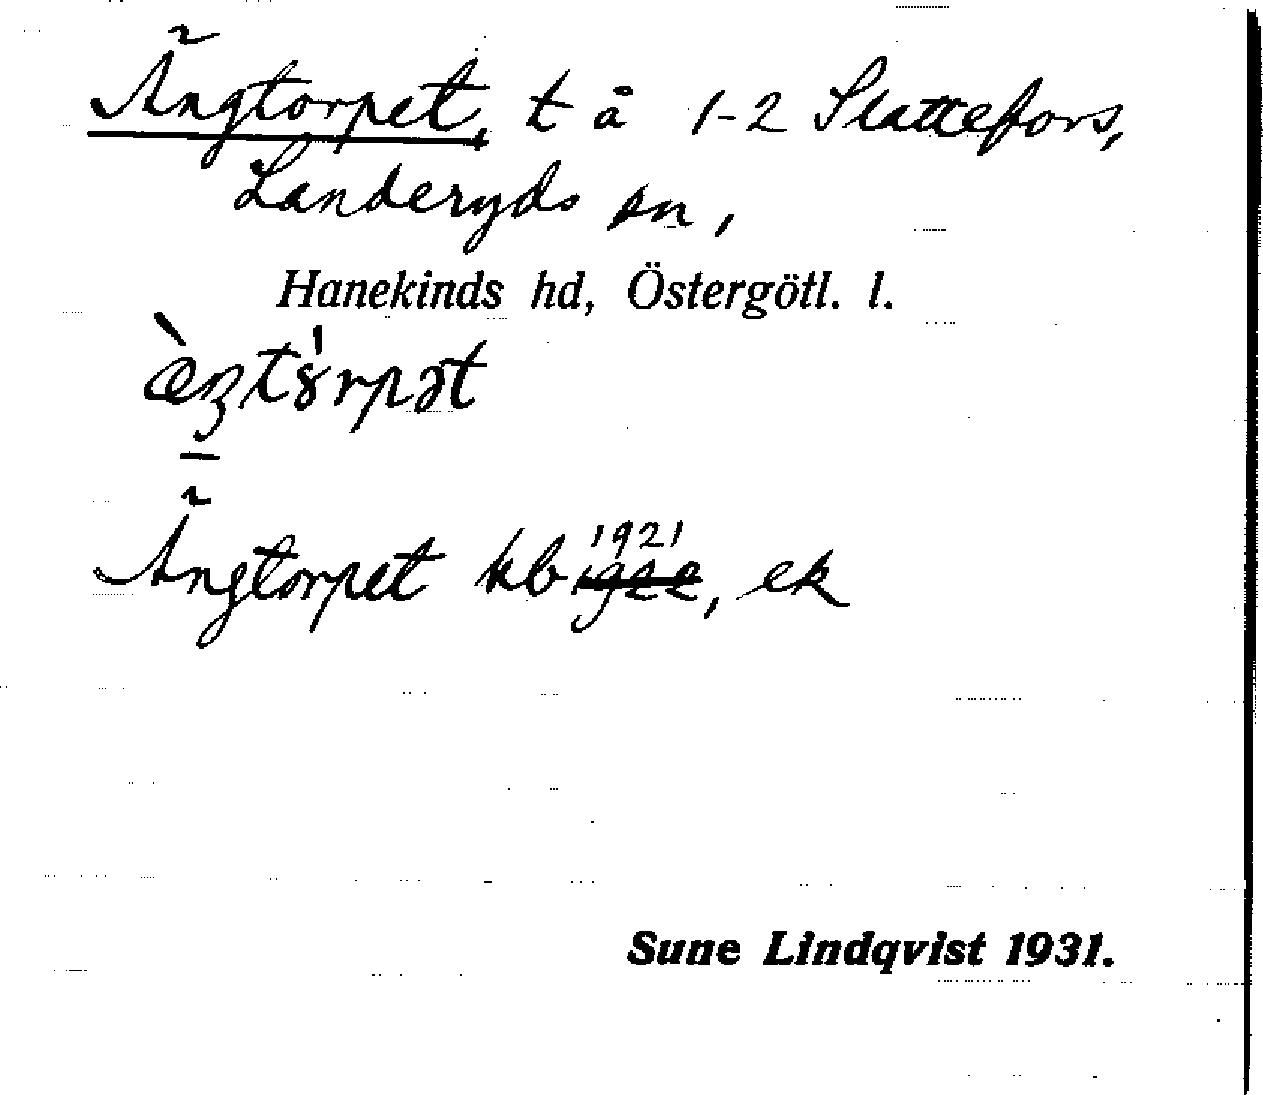 Ängtorpet, t å 1-2 Slattefors,
Landeryds sn,
Hanekinds hd, Östergötl. l.
æ̀ŋtɤ́rpət
Ängtorpet kb 1921, ek
Sune Lindqvist 1931.